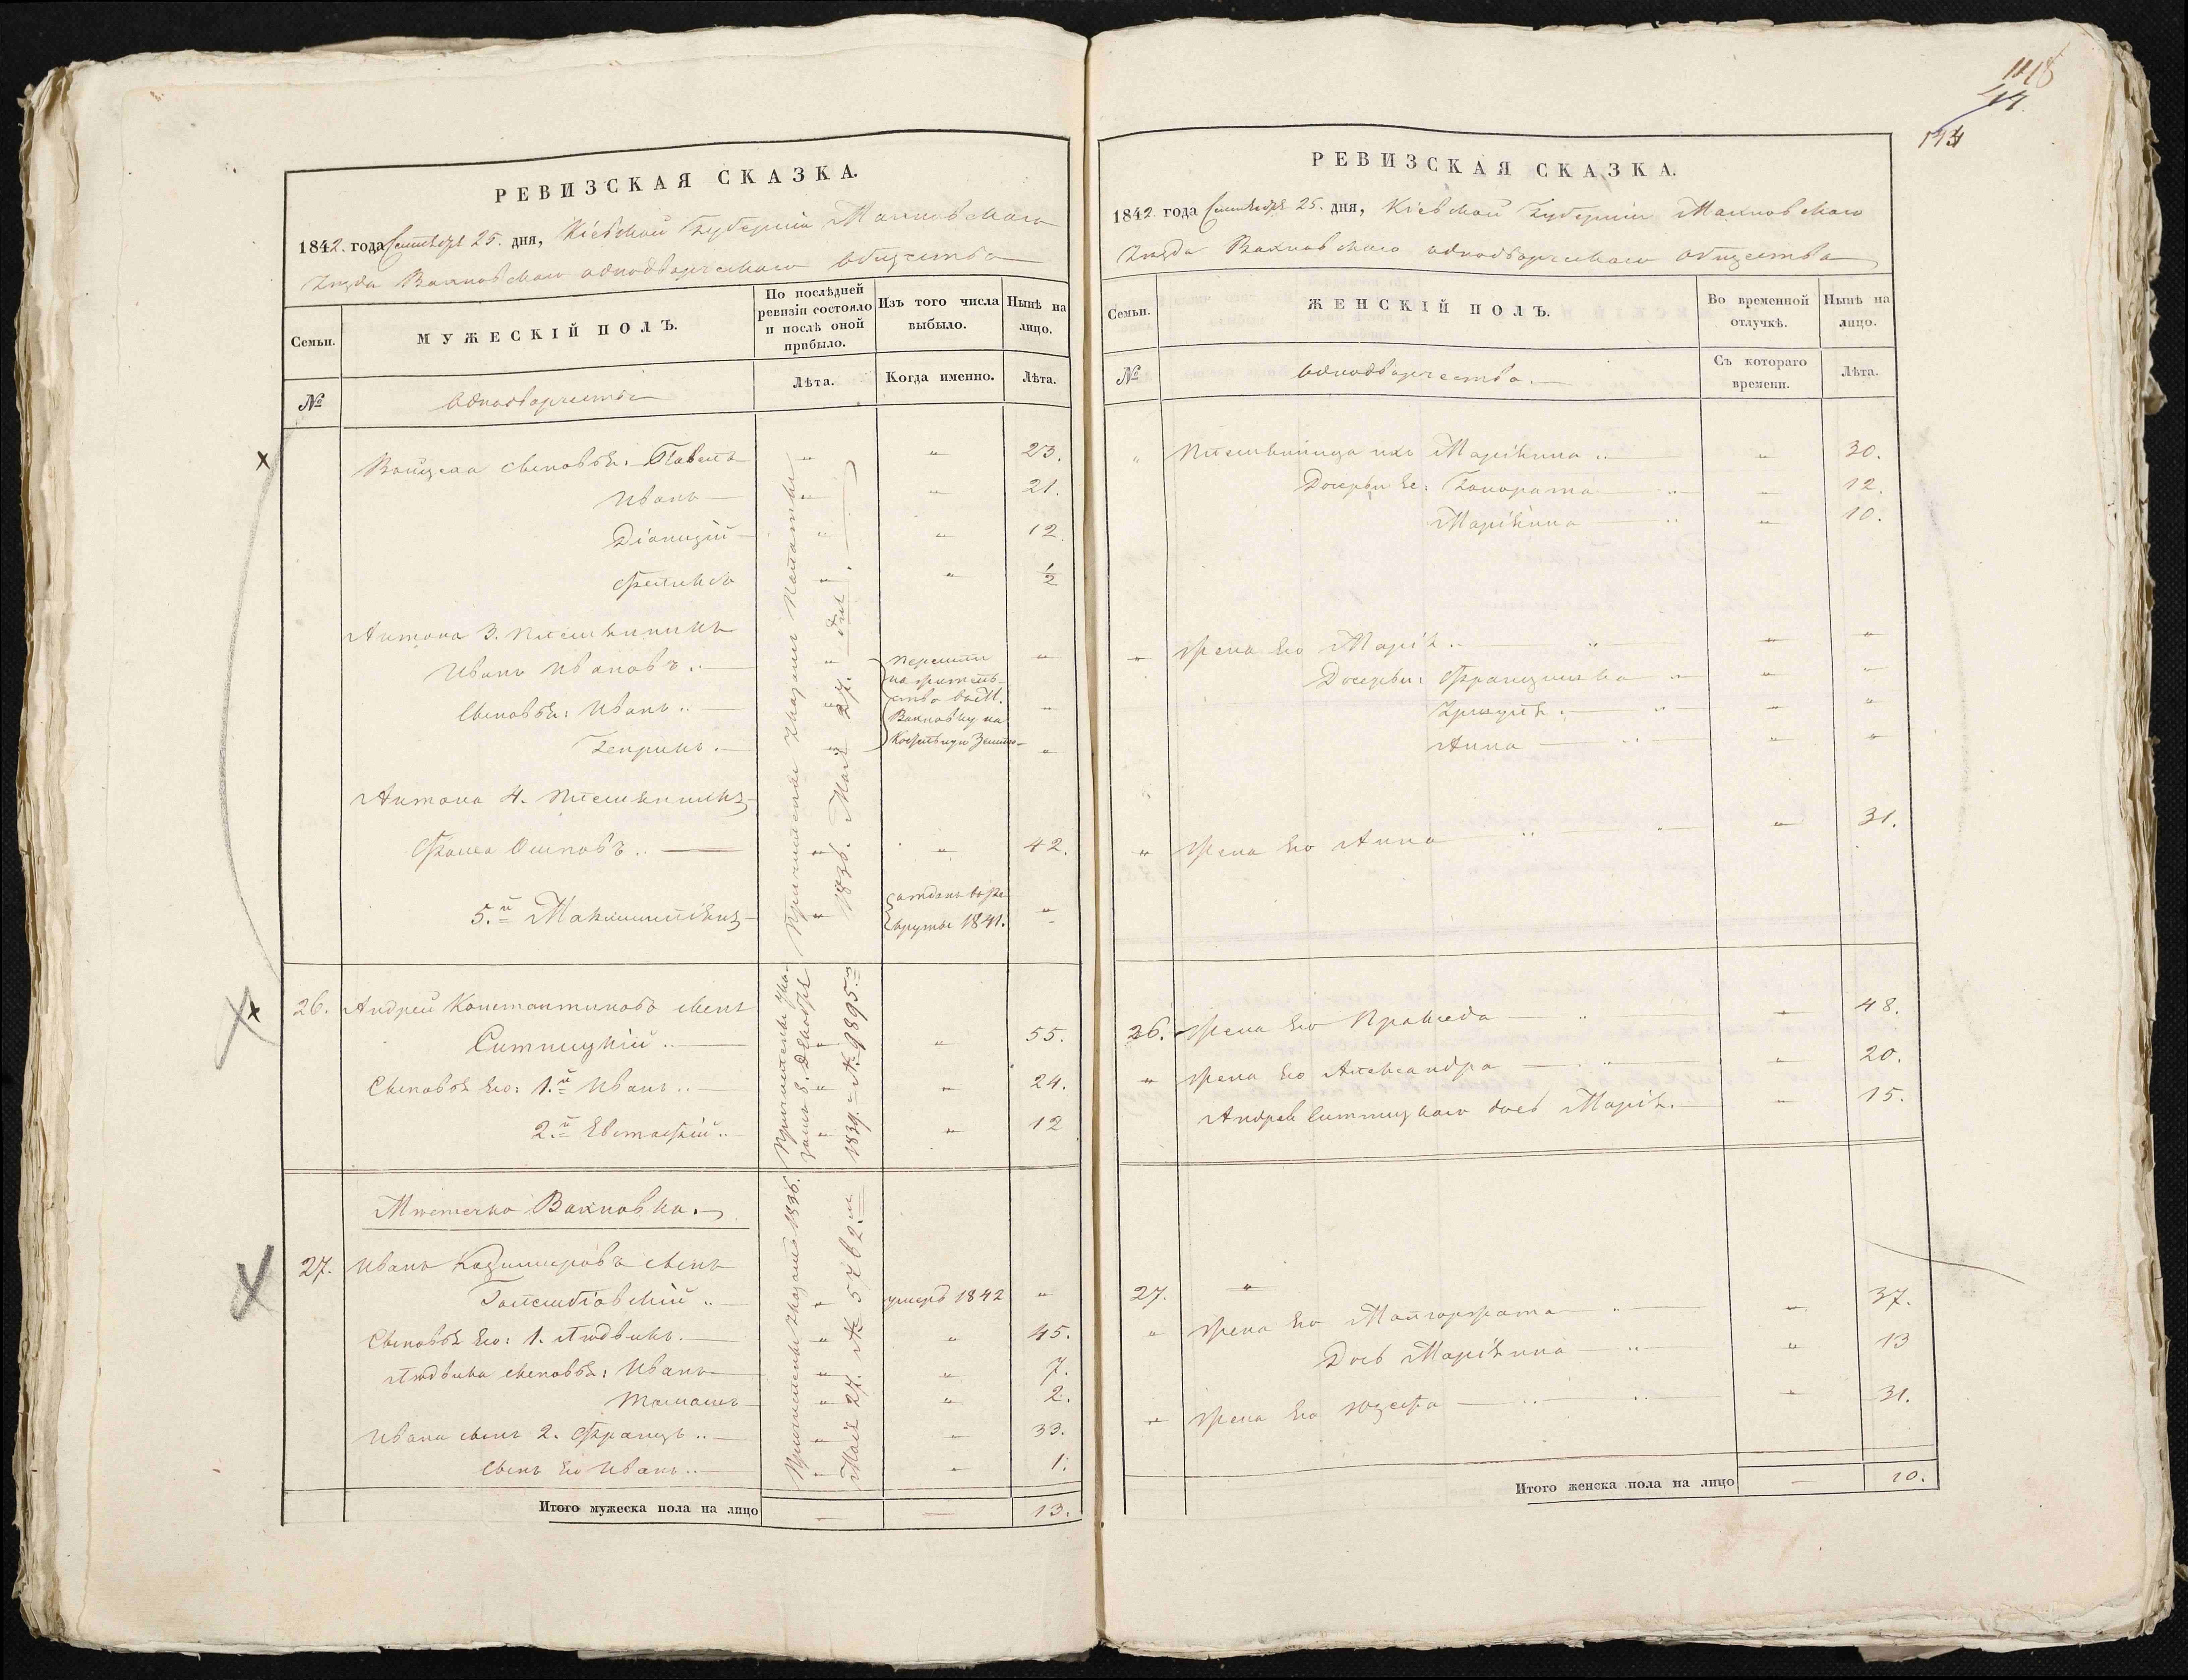 РЕВИЗСКАЯ СКАЗКА.
1842. года Сентября 25. дня, Кіевской Губерніи Махновскаго
Уѣзда Вахновскаго однодворческаго общества
Семьи.
МУЖЕСКІЙ ПОЛЪ.
По послѣдней ревизіи состояло и послѣ оной прибыло.
Изъ того числа выбыло.
Нынѣ на лицо.
№
однодворчества
Лѣта.
Когда именно.
Лѣта.
Войцеха сыновья: Павелъ — " " 23.
Иванъ — " " 21.
Діонизій — " " 12.
Феликсъ " " 1/2
Антона 3. племянникъ
Иванъ Ивановъ .. — " "
Сыновья: Иванъ .. — " "
Генрикъ . — " "
перешли
на житель-
ство въ М.
Вахновку на
Антона 4. племянникъ
Фома Осиповъ .. — " " 42.
5.й Максимиліянъ " "
отданъ въ ре-
круты 1841.
Причислены Указомъ Палаты
1836. Мая 27. дня.
26. Андрей Константиновъ сынъ
Ситницкій .. — " " 55.
Сыновья Его: 1.й Иванъ .. " " 24.
2.й Евстафій .. " " 12
Причислены Ука-
зомъ 8. Декабря
1839. = № 9895.
Мѣстечко Вахновка.
27. Иванъ Казимировъ сынъ
.. — " умеръ 1842 "
Сыновья Его: 1. Людвикъ. — " " 45.
Людвика сыновья: Иванъ " " 7.
Томашъ " " 2.
Ивана сынъ 2. Францъ .. — " " 33.
Сынъ Его Иванъ .. — " " 1.
Причислены Указомъ 1836.
Мая 27. № 5762.
Итого мужеска пола на лицо — — 13.
РЕВИЗСКАЯ СКАЗКА.
1842 года Сентября 25. дня, Кіевской Губерніи Махновскаго
Уѣзда Вахновскаго однодворческаго общества
Семьи.
ЖЕНСКІЙ ПОЛЪ.
Во временной отлучкѣ.
Нынѣ на лицо.
№
однодворчества. —
Съ котораго времени.
Лѣта.
" Племянница ихъ Маріянна .. — " 30.
Дочери Ее: Гонората — .. — " 12.
Маріянна — .. " 10.
" жена Его Марія . — " — " "
Дочери: Францишка — " "
.— " — " "
Анна — .. " "
" жена Его Анна — .. — " — " 31.
26. жена Его Пракседа — " — " 48.
" жена Его Александра — .. — " 20.
Андрея Ситницкаго дочь Марія. — " 15.
27. "
" жена Его Малгоржата — .. — " 37.
Дочь Маріянна — .. — " 13
" жена Его Юзефа — .. — .. — " 31.
Итого женска пола на лицо — 10.